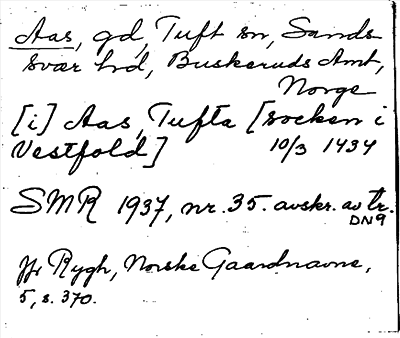 Aas, gd, Tuft sn, Sands
svær hd, Buskeruds Amt,
Norge
[i] Aas, Tufta [socken i
Vestfold] 10/3 1434
SMR 1937, nr. 35. avskr. av tr.
DN9
Jfr Rygh, Norske Gaardnavne,
5, s. 370.